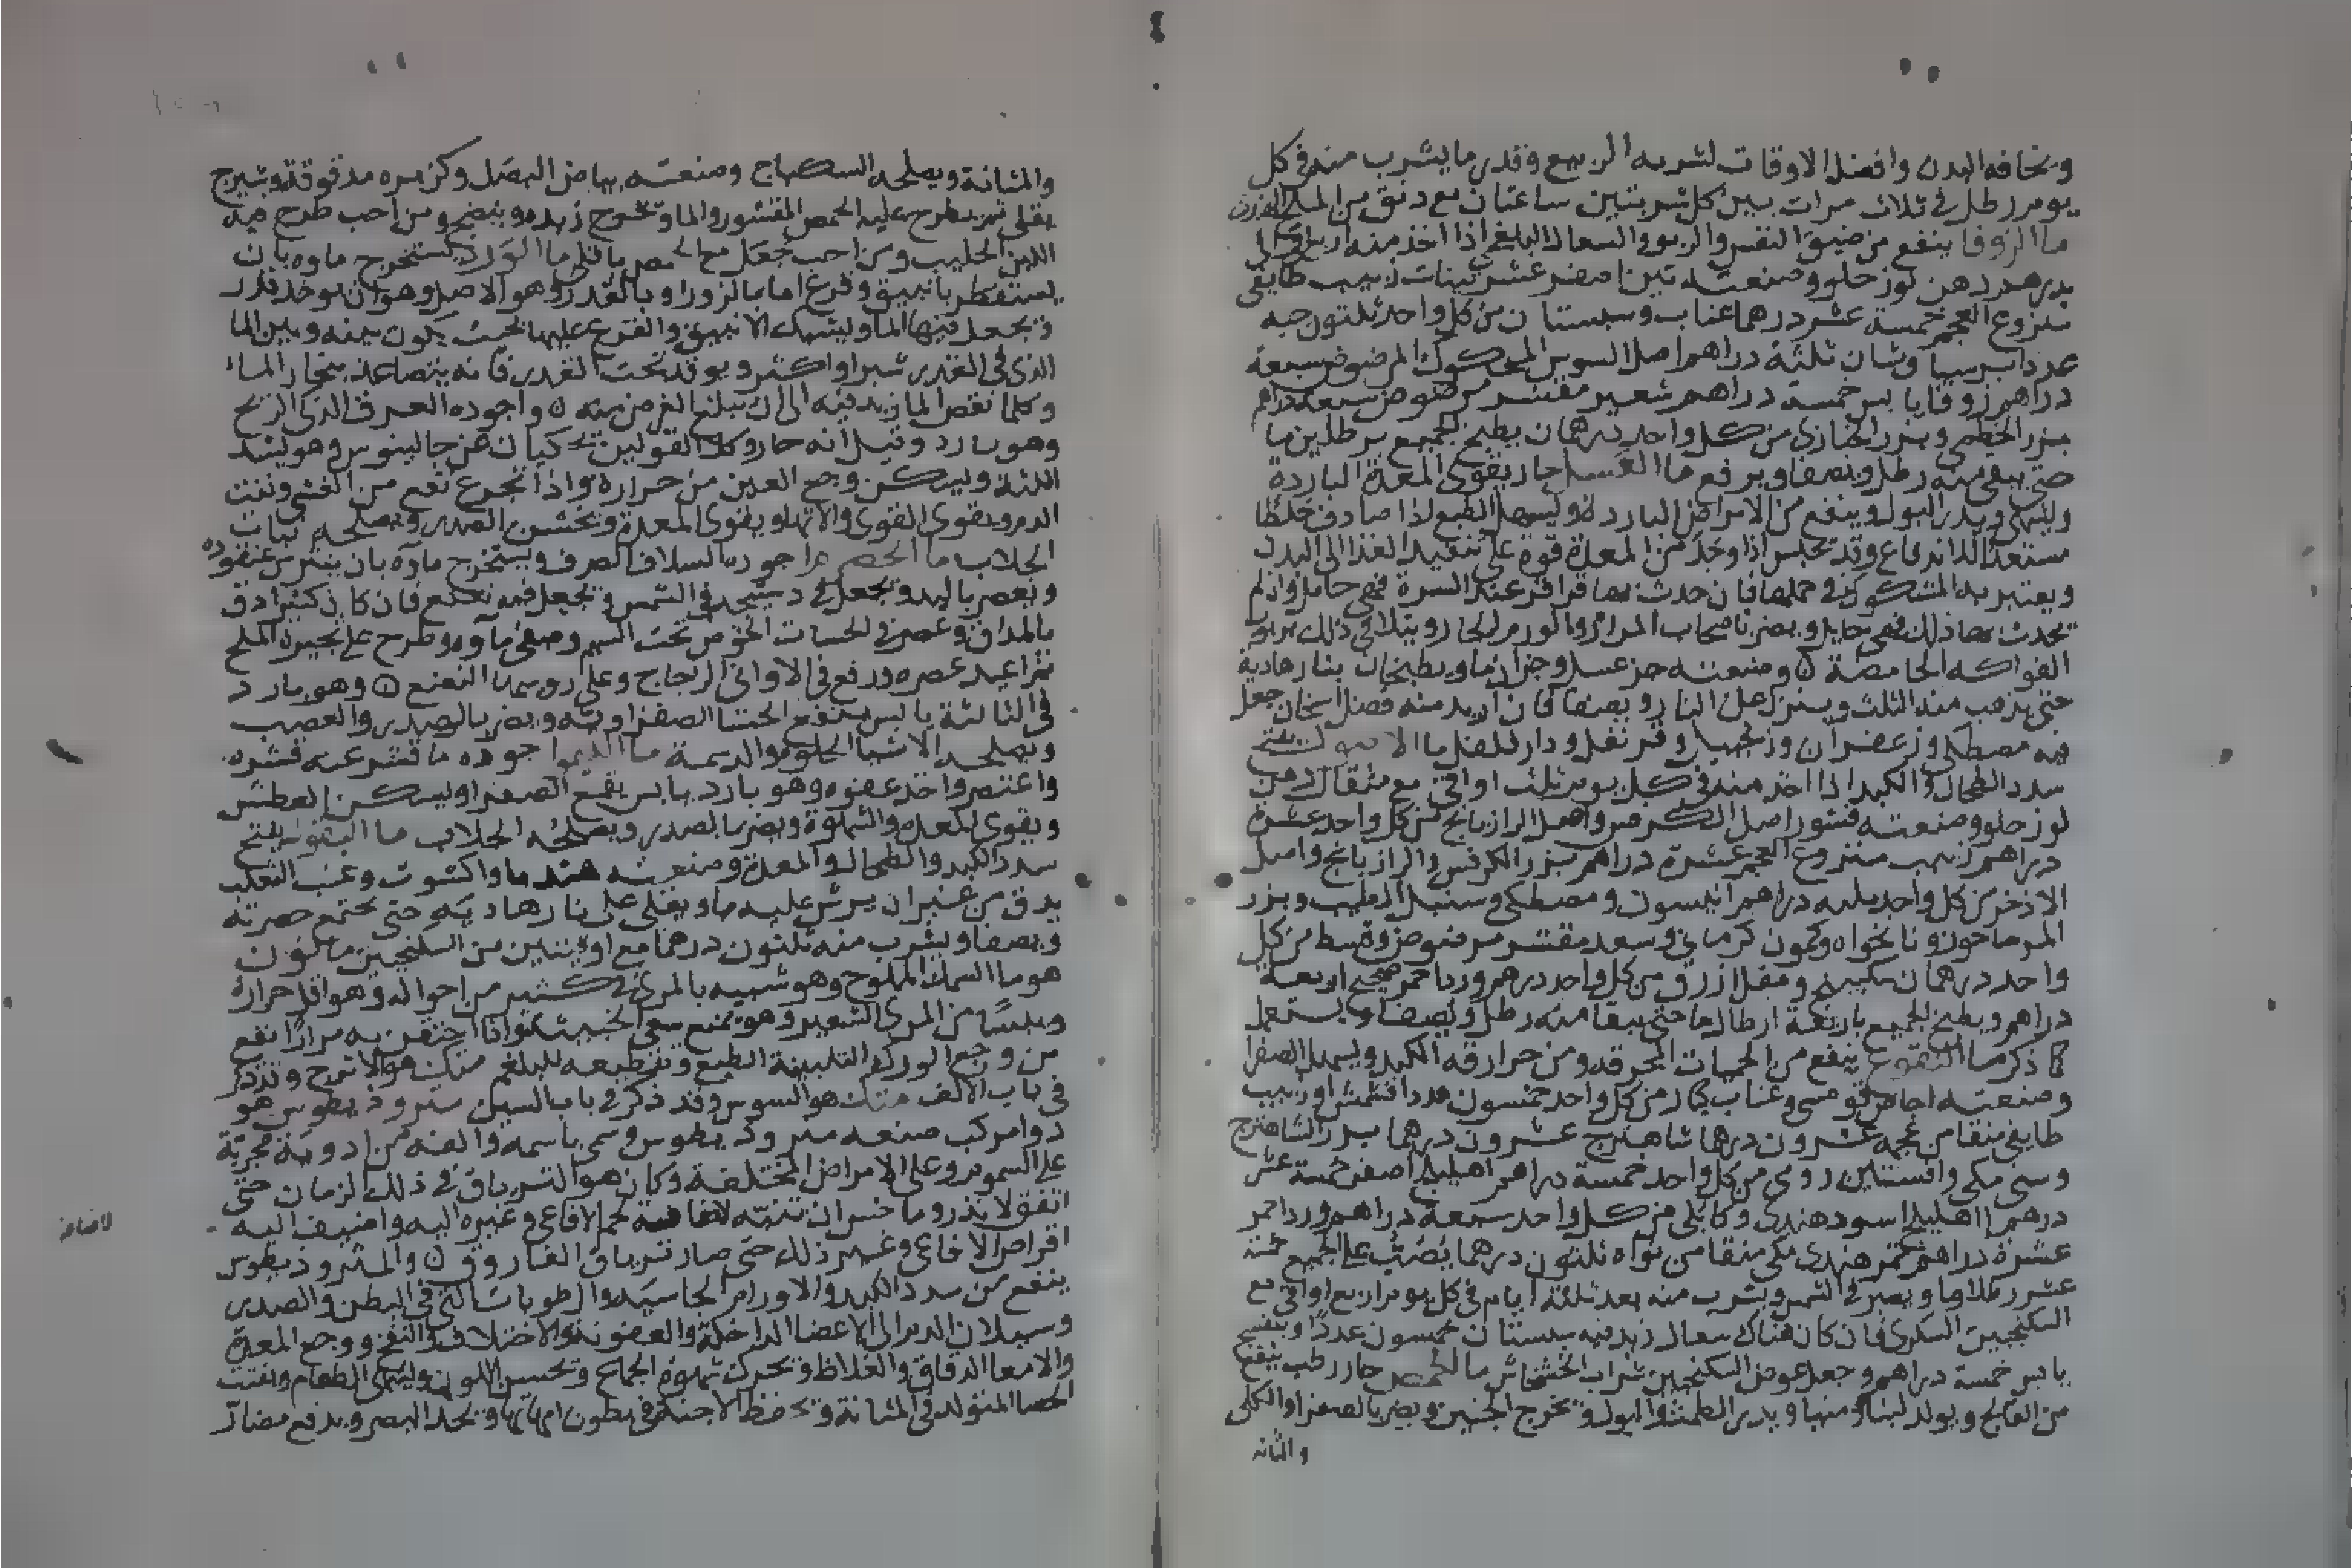 ونحافه البدن وافضل الاوقات لشربه الربيع وقدر ما يشرب منه في كل
يوم رطل في ثلاث مرات بين كل شربتين ساعتان مع دنق من الملح
ما الزوفا ينفع من ضيق النفس والربو والسعال البلغمي اذا اخذ منه اربع
بدرهم دهن لوز حلو وصنعته تين اصفر عشر تينات زبيب طايفي
منزوع العجم خمسة عشر درهما عناب وسبستان من كل واحد ثلثون حبه
عددا برسياوشان ثلثة دراهم اصل السوس المحكوك المرضوض سبعة
دراهم زوفا يابس خمسة دراهم شعير مقشر مرضوض سبعة دراهم
بزر الخطمي وبزر الخبازى من كل واحد درهمان يطبخ الجميع برطلين ما
حتى يبقى منه رطل ونصفا ويرفع ما العسل حار يقوى المعدة الباردة
ويشهى ويدر البول وينفع من الامراض الباردة ويسهل الطبع اذا صادف خلطا
مستعدا للاندفاع وقد يحبس اذا وجد من المعدة قوة على تنفيذ الغذا الى البدن
ويعتبر به المشكوك في حملها فان حدث بها قراقر عند السرة فهي حامل واذ لم
يحدث بها ذلك فهي حايل ويضر باصحاب المرار والورم الحار ويتلافى ذلك بربوب
الفواكه الحامضة وصنعته جز عسل وجزان ما ويطبخان بنار هادية
حتى يذهب منه الثلث وينزل على النار ويصفا فان اريد منه فضل اسخان جعل
فيه مصطكى وزعفران وزنجبيل وقرنفل ودارفلفل ما الاصول يفتح
سدد الطحال والكبد اذا اخذ منه في كل يوم ثلث اواقي مع مثقال دهن
لوز حلو وصنعته قشور اصل الكرفس واصل الرازيانج من كل واحد عشرة
دراهم زبيب منزوع العجم عشرة دراهم بزر الكرفس والرازيانج واصل
الاذخر من كل واحد ثلثه دراهم انيسون ومصطكى وسنبل الطيب وبزر
المرماحوز ونانخواه وكمون كرماني وسعد مقشر مرضوض وقسط من كل
واحد درهمان سكبينج ومقل ازرق من كل واحد درهم ورد احمر صحيح اربعة
دراهم ويطبخ الجميع باربعة ارطال ما حتى يبقا منه رطل ونصفا ويستعمل
كما ذكر ما النقوع ينفع من الحميات المحرقه ومن حرارة الكبد ويسهل الصفرا
وصنعته اجاص قومسى وعناب كبار من كل واحد خمسون عددا قشمش او زبيب
طايفي منقا من عجمه عشرون درهما شاهترج عشرون درهما بزر الشاهترج
وسنى مكى وافسنتين رومى من كل واحد خمسة دراهم اهليلج اصفر خمسة عشر
درهما اهليلج اسود هندى وكابلى من كل واحد سبعة دراهم ورد احمر
عشرة دراهم تمر هندى مكى منقا من نواه ثلثون درهما يصب على الجميع خمسة
عشر رطلا ما ويصير في الشمس ويشرب منه بعد ثلثة ايام في كل يوم اربع اواقي مع
السكنجبين السكرى فان كان هناك سعال زيد فيه سبستان خمسون عددا وبنفسج
يابس خمسة دراهم وجعل عوض السكنجبين شراب الخشخاش ما الحمص حار رطب ينفع
من الفالج ويولد لبنا ومنيا ويدر الطمث والبول ويخرج الجنين ويضر بالصفرا والكلى
والمثانه
والمثانة ويصلحه السكباج وصنعته بياض البصل وكزبره مدقوقة وشيرج
يقلى ثم يطرح عليه الحمص المقشور والما ويخرج زبده وينضج ومن احب طرح فيه
اللبن الحليب ومن احب جعل مع الحمص باقلى ما الورد يستخرج ماوه بان
يستقطر بانبيق وقرع اما بالزور او بالقدر وهو الاصل وهو ان يوخذ قدر
فيجعل فيها الما ويشبك الانبيق والقرع عليها بحيث يكون بينه وبين الما
الذى في القدر شبر او اكثر ويوقد تحت القدر فانه يتصاعد بنجار الماء
وكلما نقص الما زيد فيه الى ان يبلغ الغرض منه واجوده العرق الذكى الريح
وهو بارد وقيل انه حار وكلا القولين يحكيان عن جالينوس وهو يشد
اللثة ويسكن وجع العين من حرارة واذا تجرع نفع من الغشى ونفث
الدم ويقوى القوى والالها ويقوى المعدة ويخشن الصدر ويصلحه نبات
الجلاب ما الحصرم اجوده السلاف الصرف ويستخرج ماوه بان ينثر من عنقوده
ويعصر باليد ويجعل في دستجه في الشمس ويجعل فيه نعنع فان كان كثيرا دق
بالمداق وعصر في الحسات الخوص تحت السهم وصفى ماوه وطرح على بحيره الملح
ثم اعيد عصره ورفع في الاواني الزجاج وعلى روسها النعنع وهو بارد
في الثالثة يابس ينفع الحشا الصفراويه ويضر بالصدر والعصب
ويصلحه الاشيا الحلوه والدسمة ما الليموا جوده ما قشر عنه قشره
واعتصر واخذ عفوه وهو بارد يابس يقمع الصفرا ويسكن العطش
ويقوى المعده والشهوة ويضر بالصدر ويصلحه الجلاب ما البقول يفتح
سدد الكبد والطحال والمعدة وصنعته هندبا واكشوث وعنب الثعلب
يدق من غير ان يرش عليه ما ويغلى على نار هاديه حتى يجتمع خضرته
ويصفا ويشرب منه ثلثون درهما مع اوقيتين من السكنجبين ما النون
هو ما السمك المملوح وهو شبيه بالمرى في كثير من احواله وهو اقل حرارة
ويبسا من المرى الشعير وهو يمنع سعى الخبيثه واذا احتقن به مرارا نفع
من وجع الورك لتليينه الطبع وتقطيعه للبلغم متك هو الاترج ونذكر
في باب الالف متك هو السوس وقد ذكر في باب السين مثروذيطوس هو
دوا مركب صنعه مثروذيطوس وسمى باسمه والفه من ادوية مجربة
على السموم وعلى الامراض المختلفة وكان هو الترياق في ذلك الزمان حتى
اتفق لاندروماخس ان تنبه لاضافة لحم الافاعي وغيره اليه واضيف اليه
اقراص الافاعي وغير ذلك حتى صار ترياق الفاروق والمثروذيطوس
ينفع من سدد الكبد والاورام الجاسيه والرطوبات التي في البطن والصدر
وسيلان الدم الى الاعضا الداخلة والعفونة والاختلاف والنفخ ووجع المعدة
والامعا الدقاق والغلاظ ويحرك شهوة الجماع ويحسن اللون ويشهى الطعام ويفتت
الحصا المتولد في المثانة ويحفظ الاجنة في بطون امهاتها ويحد البصر ويدفع مضار
لاضافة